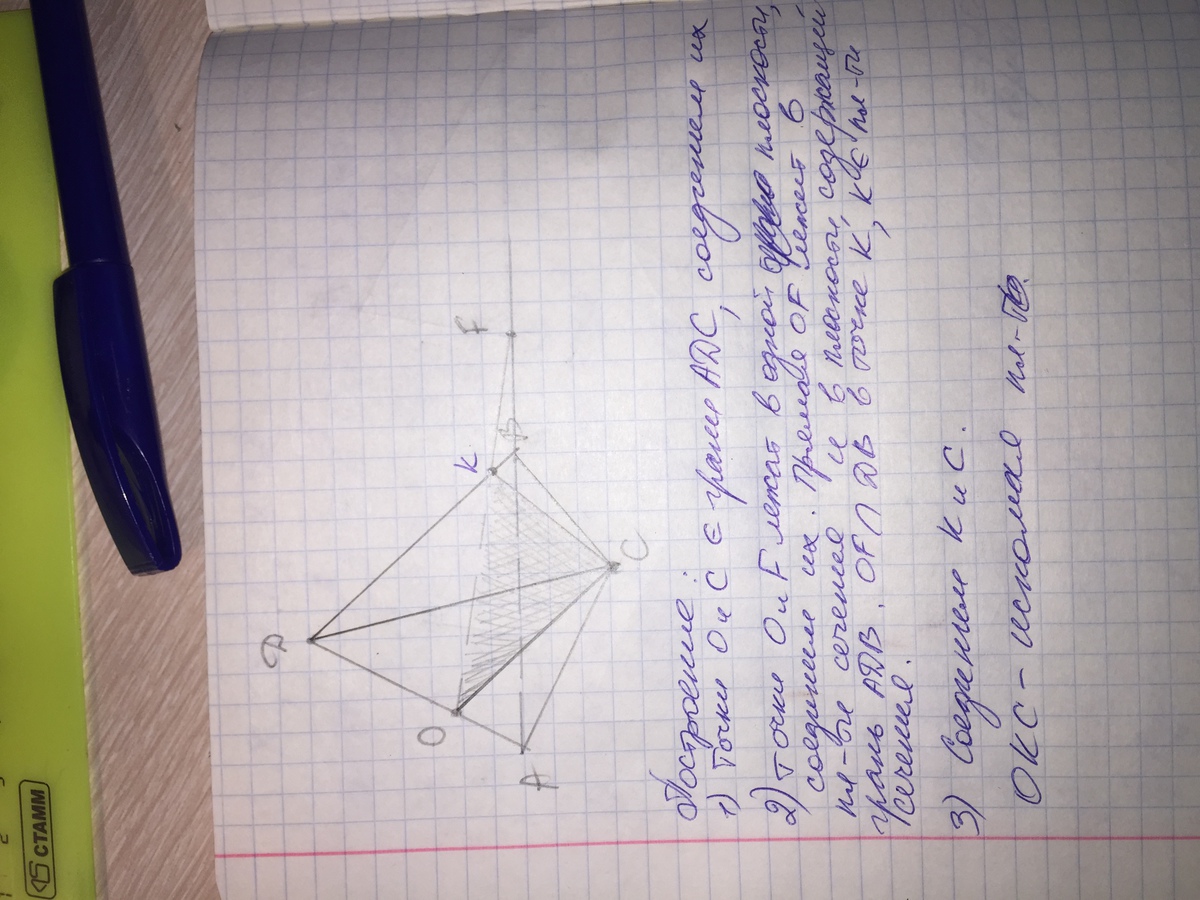 D
O
K
F
A
B
C
Построение:
1) Точки O и C ∈ грани ADC, соединяем их
2) Точки O и F лежат в одной плоскости,
соединим их. Прямая OF лежит в
пл-ти сечения и в плоскости, содержащей
грань ADB. OF ∩ DB в точке K, K ∈ пл-ти
сечения.
3) Соединяем K и C.
OKC – искомая пл-ть.
СТАММ